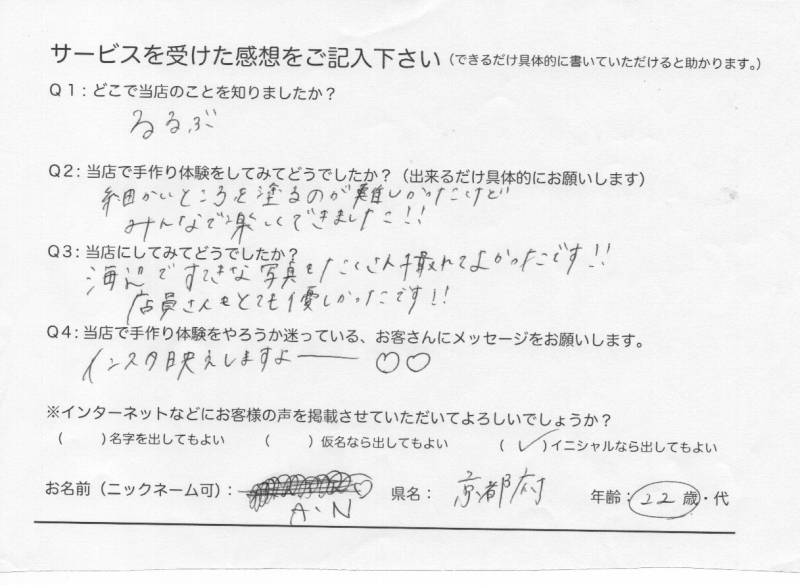 サービスを受けた感想をご記入下さい（できるだけ具体的に書いていただけると助かります。）
Q1：どこで当店のことを知りましたか？
るるぶ
Q2：当店で手作り体験をしてみてどうでしたか？（出来るだけ具体的にお願いします）
細かいところを塗るのが難しかったけど
みんなで楽しくできました!!
Q3：当店にしてみてどうでしたか？
海辺ですてきな写真もたくさん撮れてよかったです!!
店員さんもとても優しかったです!!
Q4：当店で手作り体験をやろうか迷っている、お客さんにメッセージをお願いします。
インスタ映えしますよー ♡♡
※インターネットなどにお客様の声を掲載させていただいてよろしいでしょうか？
（　　）名字を出してもよい （　　）仮名なら出してもよい （ ✓ ）イニシャルなら出してもよい
お名前（ニックネーム可）： A・N 県名： 京都府 年齢： 22 歳・代